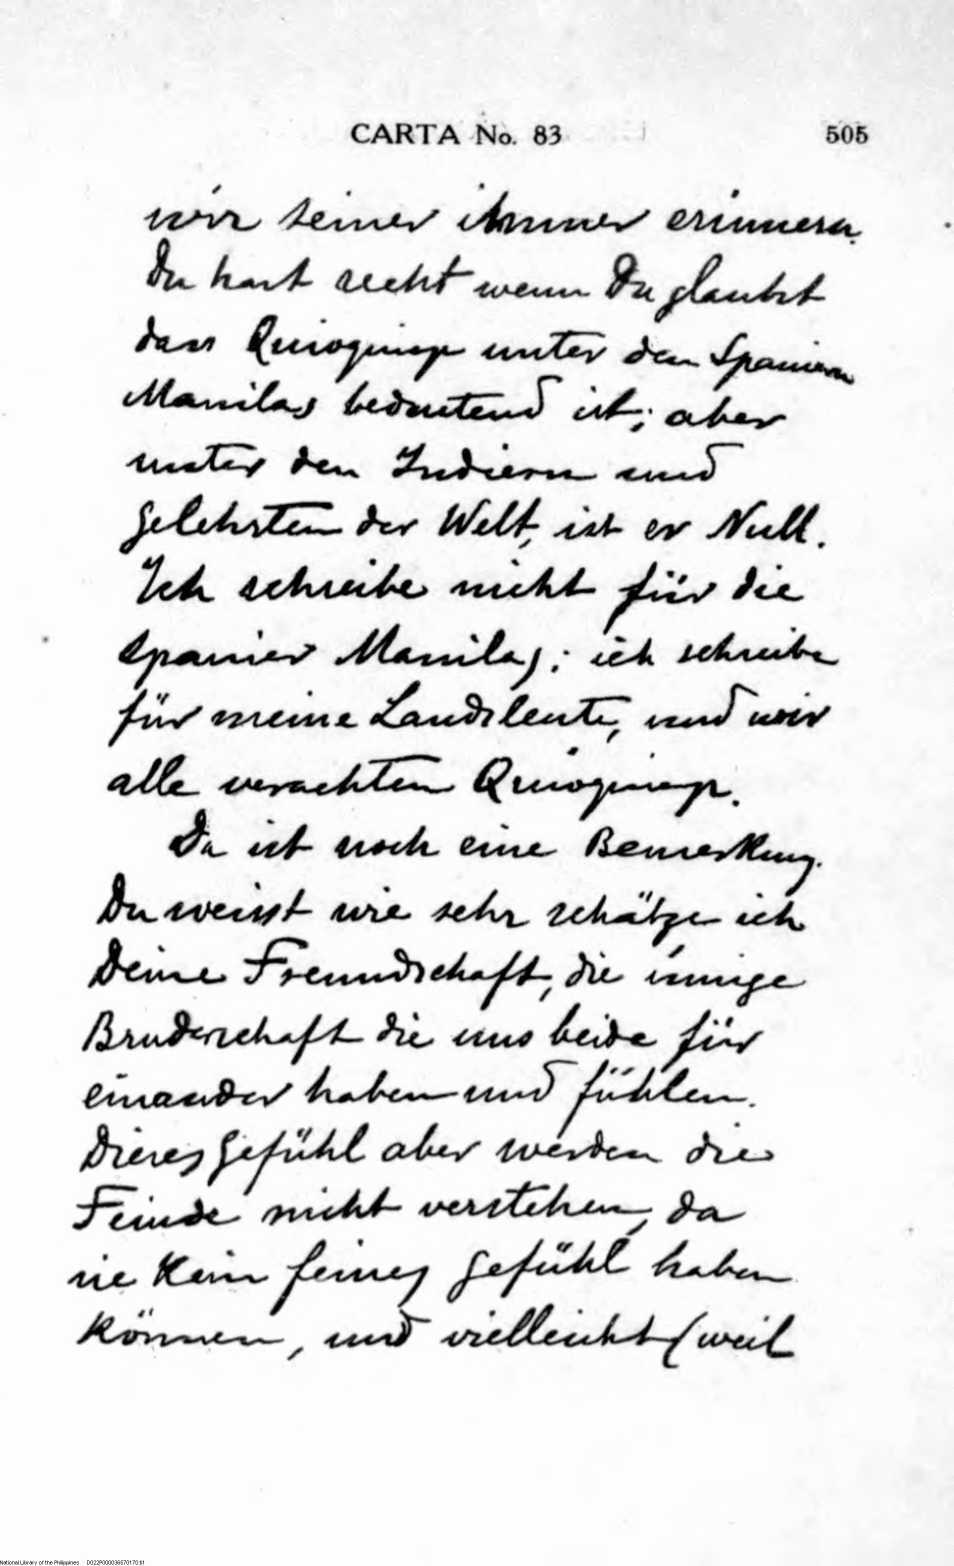 CARTA No. 83 505
wir seiner immer erinnern.
Du hast recht wenn Du glaubst
dass Quioquiap unter den Spaniern
Manilas bedeutend ist; aber
unter den Indiern und
Gelehrten der Welt, ist er Null.
Ich schreibe nicht für die
Spanier Manilas; ich schreibe
für meine Landsleute, und wir
alle verachten Quioquiap.
Da ist noch eine Bemerkung.
Du weisst wie sehr schätze ich
Deine Freundschaft, die innige
Bruderschaft die uns beide für
einander haben und fühlen.
Dieses Gefühl aber werden die
Feinde nicht verstehen, da
sie kein feines Gefühl haben
können, und vielleicht (weil
National Library of the Philippines